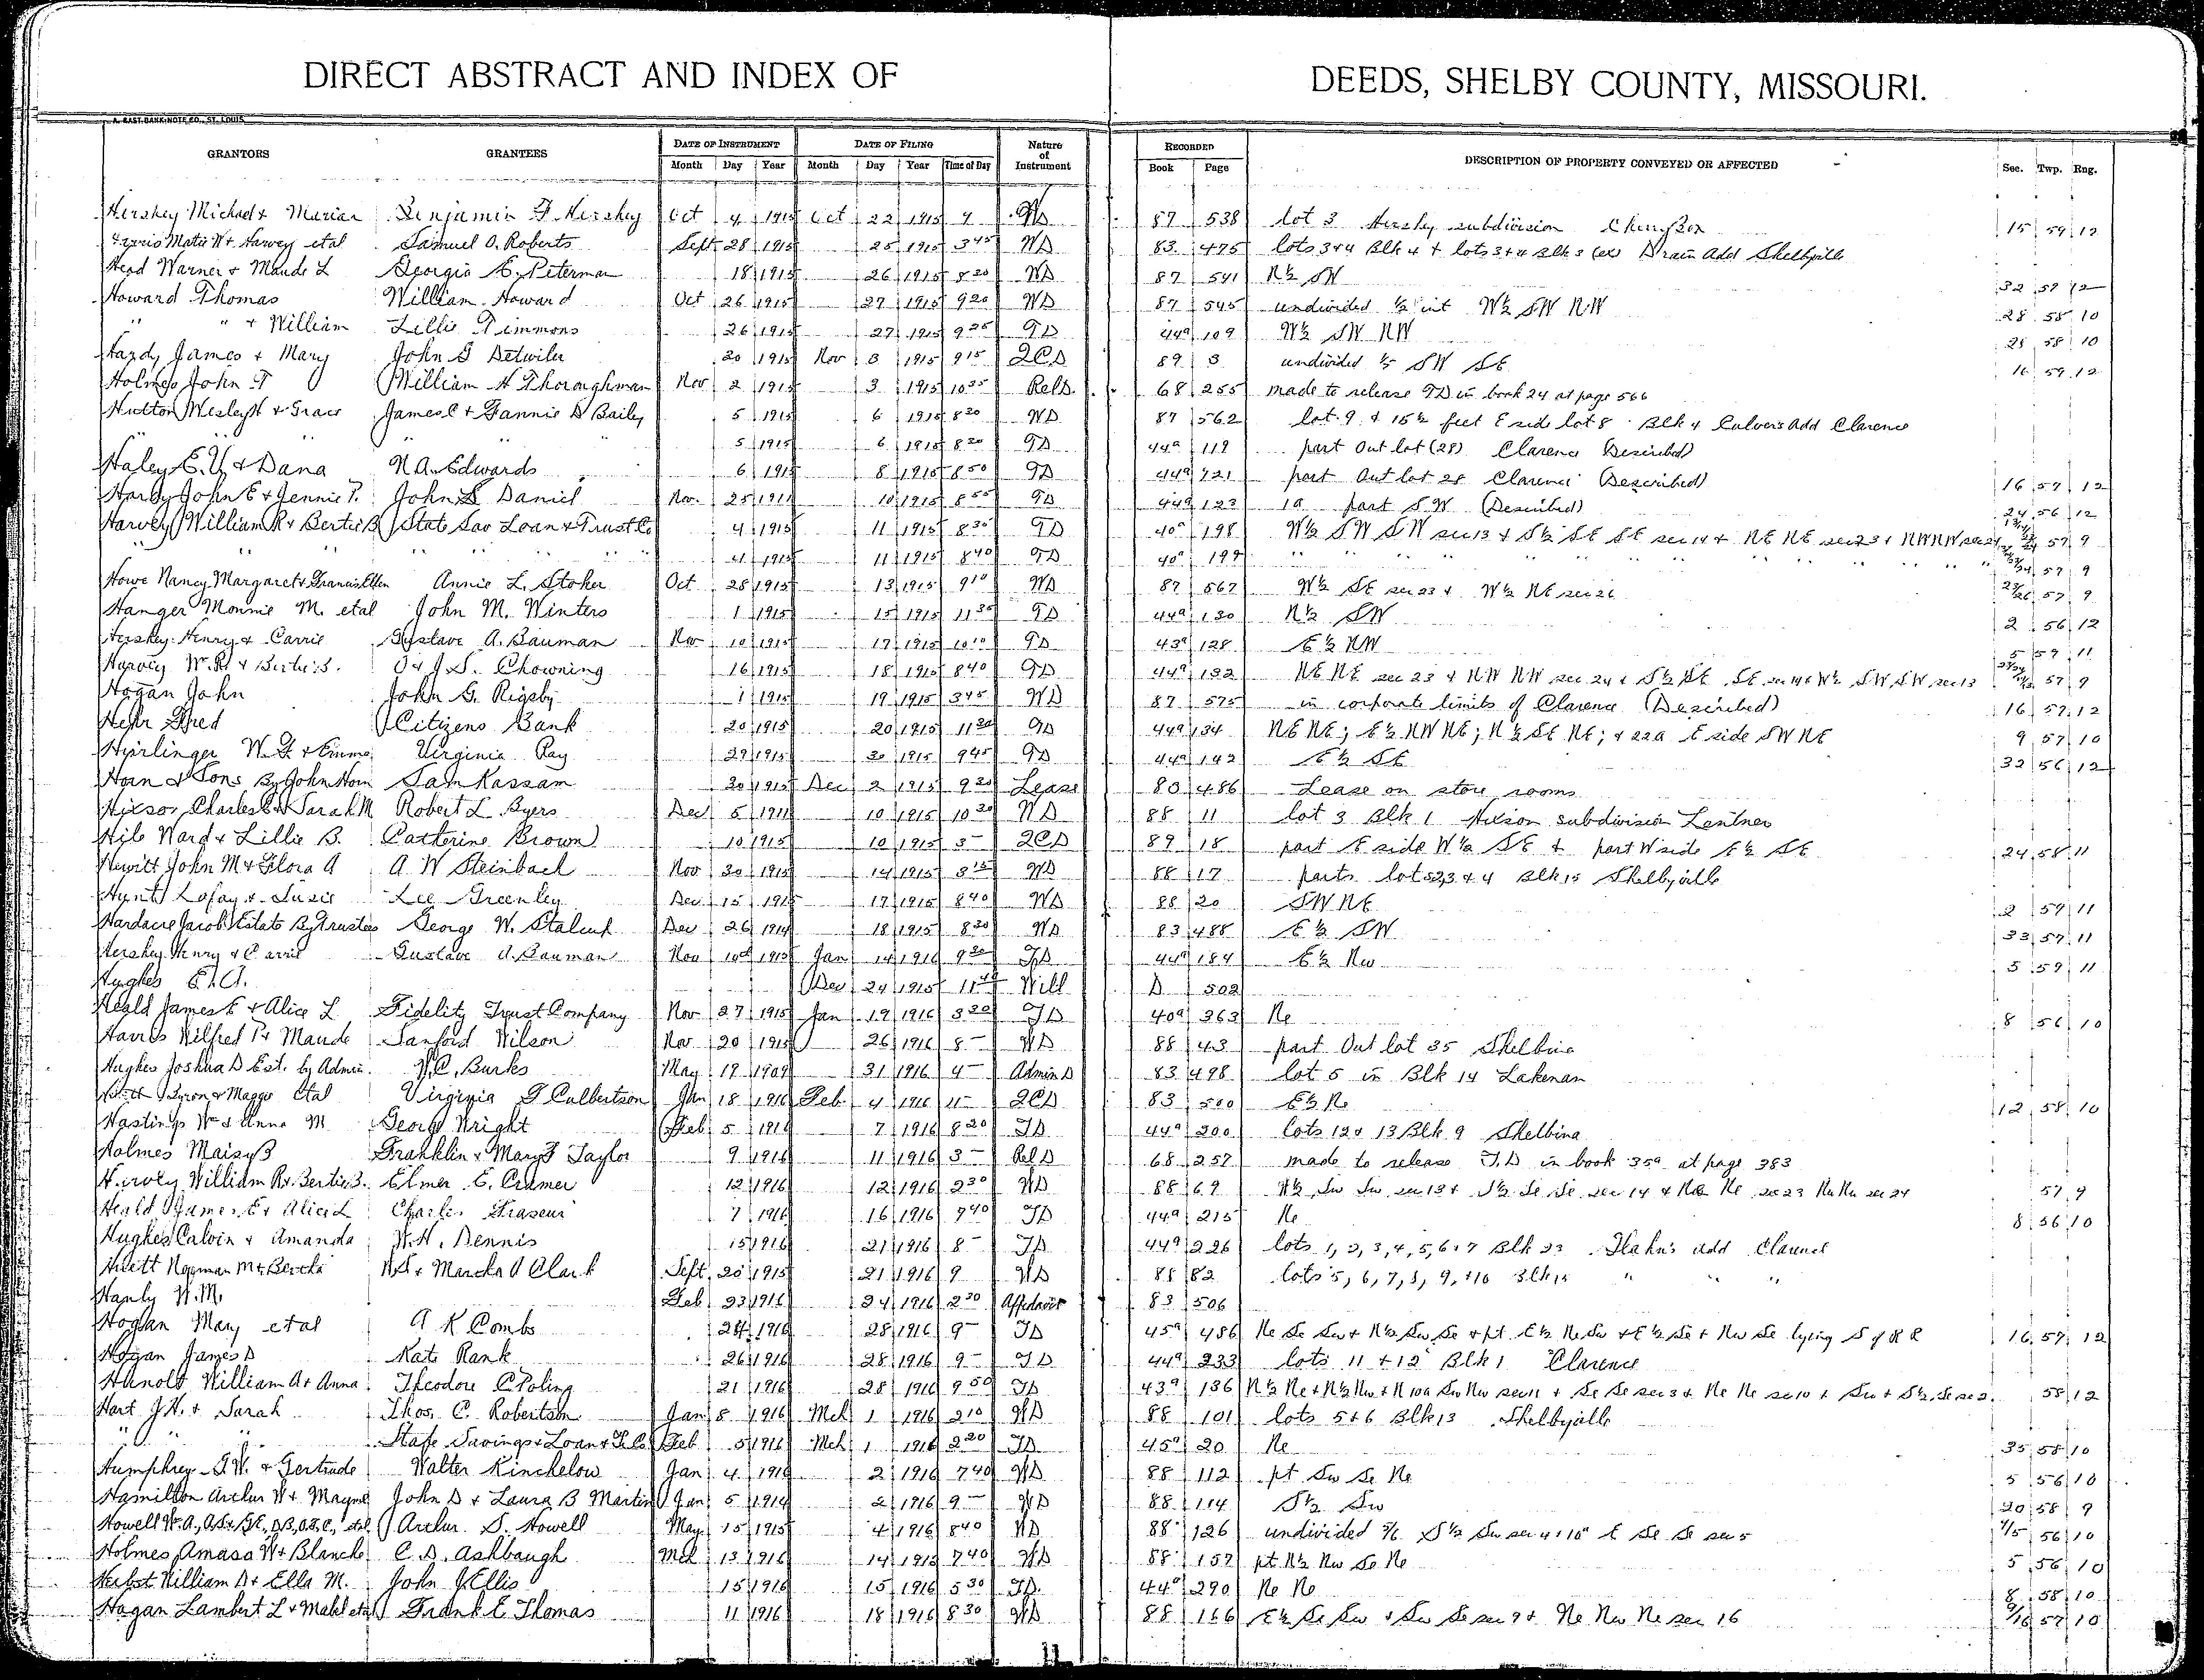 DIRECT ABSTRACT AND INDEX OF DEEDS, SHELBY COUNTY, MISSOURI.
GRANTORS GRANTEES DATE OF INSTRUMENT DATE OF FILING Nature of Instrument RECORDED DESCRIPTION OF PROPERTY CONVEYED OR AFFECTED Sec. Twp. Rng.
Month Day Year Month Day Year Time of Day Book Page
Hershey Michael & Marian Benjamin F Hershey Oct 4 1915 Oct 22 1915 9 WD 87 538 lot 3 Hershy subdivision Cherry Box 15 59 12
Samuel O. Roberts Sept 28 1915 25 1915 345 WD 83 475 lots 3+4 Blk 4 + lots 3+4 Blk 3 Drain Add Shelbyville
Head Warner & Maude L Georgia E. Peterman 18 1915 26 1915 820 WD 87 541 N½ SW 32 59 12
Howard Thomas William Howard Oct 26 1915 27 1915 920 WD 87 545 undivided ½ int W½ SW NW 28 58 10
" " & William Lillie Timmons 26 1915 27 1915 925 TD 44a 109 W½ SW NW 28 58 10
Hardy James & Mary John G Detwiler 20 1915 Nov 3 1915 915 QCD 89 3 undivided 1/5 SW SE 16 59 12
Holmes John T William H Thoroughman Nov 2 1915 3 1915 1025 RelD. 68 255 made to release TD in book 24 at page 566
Hutton Wesley H & Grace James C & Fannie D Bailey 5 1915 6 1915 820 WD 87 562 lot 9 & 15½ feet E side lot 8 Blk 4 Culvers Add Clarence
" " " 5 1915 6 1915 820 TD 44a 119 part Out lot (28) Clarence (Described)
Haley E.U. & Dana N.A. Edwards 6 1915 8 1915 850 TD 44a 121 part Out lot 28 Clarence (Described) 16 57 12
Hardy John E & Jennie P. John S Daniel Nov. 25 1911 10 1915 855 TD 44a 123 1a part SW (Described) 24 56 12
Harvey William R & Bertie B State Sav Loan & Trust Co 4 1915 11 1915 830 TD 40a 198 W½ SW SW sec 13 & S½ SE SE sec 14 & NE NE sec 23 & NW NW sec 24 57 9
" " " " " " 4 1915 11 1915 840 TD 40a 199 " " " " 57 9
Howe Nancy Margaret & Francis Ellen Annie L. Stoker Oct 28 1915 13 1915 910 WD 87 567 W½ SE sec 23 & W½ NE sec 26 23/26 57 9
Hanger Monnie M. etal John M. Winters 1 1915 15 1915 1135 TD 44a 130 N½ SW 2 56 12
Hershey Henry & Carrie Gustave A. Bauman Nov 10 1915 17 1915 1010 TD 43a 128 E½ NW 5 59 11
Harvey W.R. & Bertie B. O & J.S. Chowning 16 1915 18 1915 840 TD 44a 132 NE NE sec 23 & NW NW sec 24 & S½ SE SE sec 14 & W½ SW SW sec 13 57 9
Hogan John John G. Rigsby 1 1915 19 1915 345 WD 87 575 in corporate limits of Clarence (Described) 16 57 12
Hehr Fred Citizens Bank 20 1915 20 1915 1130 TD 44a 134 NE NE; E½ NW NE; N½ SE NE; & 22a E side SW NE 9 57 10
Hirrlinger W.F & Emma Virginia Ray 29 1915 30 1915 945 TD 44a 142 E½ SE 32 56 12
Horn & Sons By John Horn Sam Kassam 30 1915 Dec 2 1915 920 Lease 83 486 Lease on store rooms
Hixson Charles E & Sarah M Robert L. Byers Dec 5 1911 10 1915 1030 WD 88 11 lot 3 Blk 1 Hixson subdivision Lentner
Hile Ward & Lillie B. Catherine Brown 10 1915 10 1915 3- QCD 89 18 part E side W½ SE & part W side E½ SE 24 58 11
Hewitt John M & Flora A A W Steinbach Nov 30 1915 14 1915 315 WD 88 17 parts lots 2,3 & 4 Blk 15 Shelbyville
Hunt Lafay & Susie Lee Greenley Dec 15 1915 17 1915 840 WD 88 20 SW NE 2 57 11
Hardacre Jacob Estate By Trustees George W. Stalcup Dec 26 1914 18 1915 820 WD 83 488 E½ SW 33 57 11
Hershey Henry & Carrie Gustave A. Bauman Nov 10 1915 Jan 14 1916 920 TD 44a 184 E½ Nw 5 59 11
Hughes E.A. Dec 24 1915 Will D 502
Heald James E & Alice L Fidelity Trust Company Nov 27 1915 Jan 19 1916 320 TD 40a 263 Ne 8 56 10
Harris Wilfred P & Maude Sanford Wilson Nov 20 1915 26 1916 8- WD 88 43 part Out lot 35 Shelbina
Hughes Joshua D Est. by Admin. W.C. Burks May 19 1909 31 1916 4- Admin D 83 498 lot 5 in Blk 14 Lakenan
Byron & Maggie etal Virginia F Culbertson Jan 18 1916 Feb 4 1916 11- QCD 83 500 E½ Ne 12 58 10
Hastings Wm & Anna M George Wright Feb 5 1916 7 1916 820 TD 44a 200 lots 12 & 13 Blk 9 Shelbina
Holmes Maisy B Franklin & Mary F Taylor 9 1916 11 1916 3- Rel D 68 257 made to release T.D in book 35a at page 383
Harvey William R & Bertie B. Elmer E. Cramer 12 1916 12 1916 230 WD 88 69 W½ Sw Sw sec 13 & S½ Se Se sec 14 & Ne Ne sec 23 Nw Nw sec 24 57 9
Heald James E & Alice L Charles Fraseur 7 1916 16 1916 940 TD 44a 215 Ne 8 56 10
Hughes Calvin & Amanda W.H. Dennis 15 1916 21 1916 8- TD 44a 226 lots 1, 2, 3, 4, 5, 6 & 7 Blk 23 add
Norman M & Bertha & Martha J Clark Sept 20 1915 21 1916 9 WD 88 82 lots 5, 6, 7, 8, 9, & 10 Blk 15 " " "
Hanly W.M. Feb 23 1916 24 1916 230 Affidavit 83 506
Hogan Mary etal A K Combs 24 1916 28 1916 9- TD 45a 486 Ne Se Sw & N½ Sw Se & pt E½ Ne Sw & E½ Se & Nw Se lying S of R R 16 57 12
Hogan James D Kate Rank 26 1916 28 1916 9- TD 44a 233 lots 11 & 12 Blk 1 Clarence
Hunolt William A & Anna Theodore C Poling 21 1916 28 1916 950 TD 43a 136 N½ Ne & N½ Nw & N 10a Sw Nw sec 11 & Se Se sec 3 & Ne Ne sec 10 & Sw & S½ Se sec 2. 58 12
Hart J.H. & Sarah Thos. C. Robertson Jan 8 1916 Mch 1 1916 210 WD 88 101 lots 5 & 6 Blk 13 Shelbyville
" " " State Savings & Loan & T. Co Feb 5 1916 Mch 1 1916 220 TD 45a 20 Ne 35 58 10
Humphrey G.W. & Gertrude Walter Kinchelow Jan 4 1916 2 1916 740 WD 88 112 pt Sw Se Ne 5 56 10
Hamilton Arthur W & Mayme John D & Laura B Martin Jan 5 1914 2 1916 9- WD 88 114 S½ Sw 20 58 9
Howell W.A., etal Arthur S. Howell May 15 1915 4 1916 840 WD 88 126 undivided S½ Sw sec 4 & 10a E Se Se sec 5 4/5 56 10
Holmes Amasa W & Blanche C.D. Ashbaugh Mch 13 1916 14 1916 740 WD 88 157 pt N½ Nw Se Ne 5 56 10
Herbst William D & Ella M. John J Ellis 15 1916 15 1916 530 TD. 44a 290 Ne Ne 8 58 10
Hagan Lambert L & Mabel etal Frank E Thomas 11 1916 18 1916 830 WD 88 166 E½ Se Sw & Sw Se sec 9 & Ne Nw Ne sec 16 9/16 57 10